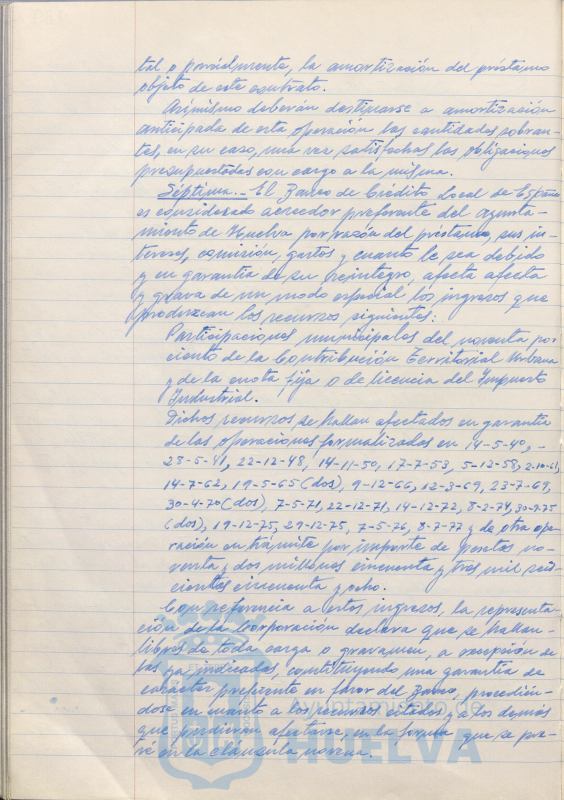 tal o parcialmente, la amortización del préstamo
objeto de este contrato.
Asimismo deberán destinarse a amortización
anticipada de esta operación las cantidades sobran-
tes, en su caso, una vez satisfechas las obligaciones
presupuestadas con cargo a la misma.
Séptima.- El Banco de Crédito Local de España
es considerado acreedor preferente del Ayunta-
miento de Huelva por razón del préstamo, sus in-
tereses, comisión, gastos y cuanto le sea debido
y en garantía de su reintegro, afecta afecta
y grava de un modo especial los ingresos que
produzcan los recursos siguientes:
Participaciones municipales del noventa por
ciento de la Contribución Territorial Urbana
y de la cuota fija o de licencia del Impuesto
Industrial.
Dichos recursos se hallan afectados en garantía
de las operaciones formalizadas en 14-5-40, -
28-5-41, 22-12-48, 14-11-50, 17-7-53, 5-12-58, 2-10-61,
14-7-62, 19-5-65 (dos), 9-12-66, 12-3-69, 23-7-69,
30-4-70 (dos), 7-5-71, 22-12-71, 14-12-72, 8-2-74, 30-9-75
(dos), 19-12-75, 29-12-75, 7-5-76, 8-7-77 y de otra ope-
ración en trámite por importe de pesetas no-
venta y dos millones cincuenta y tres mil seis-
cientas cincuenta y ocho.
Con referencia a estos ingresos, la representa-
ción de la Corporación declara que se hallan
libres de toda carga o gravamen, a excepción de
las ya indicadas, constituyendo una garantía de
carácter preferente en favor del Banco, procedién-
dose en cuanto a los recursos citados y a los demás
que pudieran afectarse, en la forma que se pre-
vé en la cláusula novena.
Ayuntamiento de
HUELVA